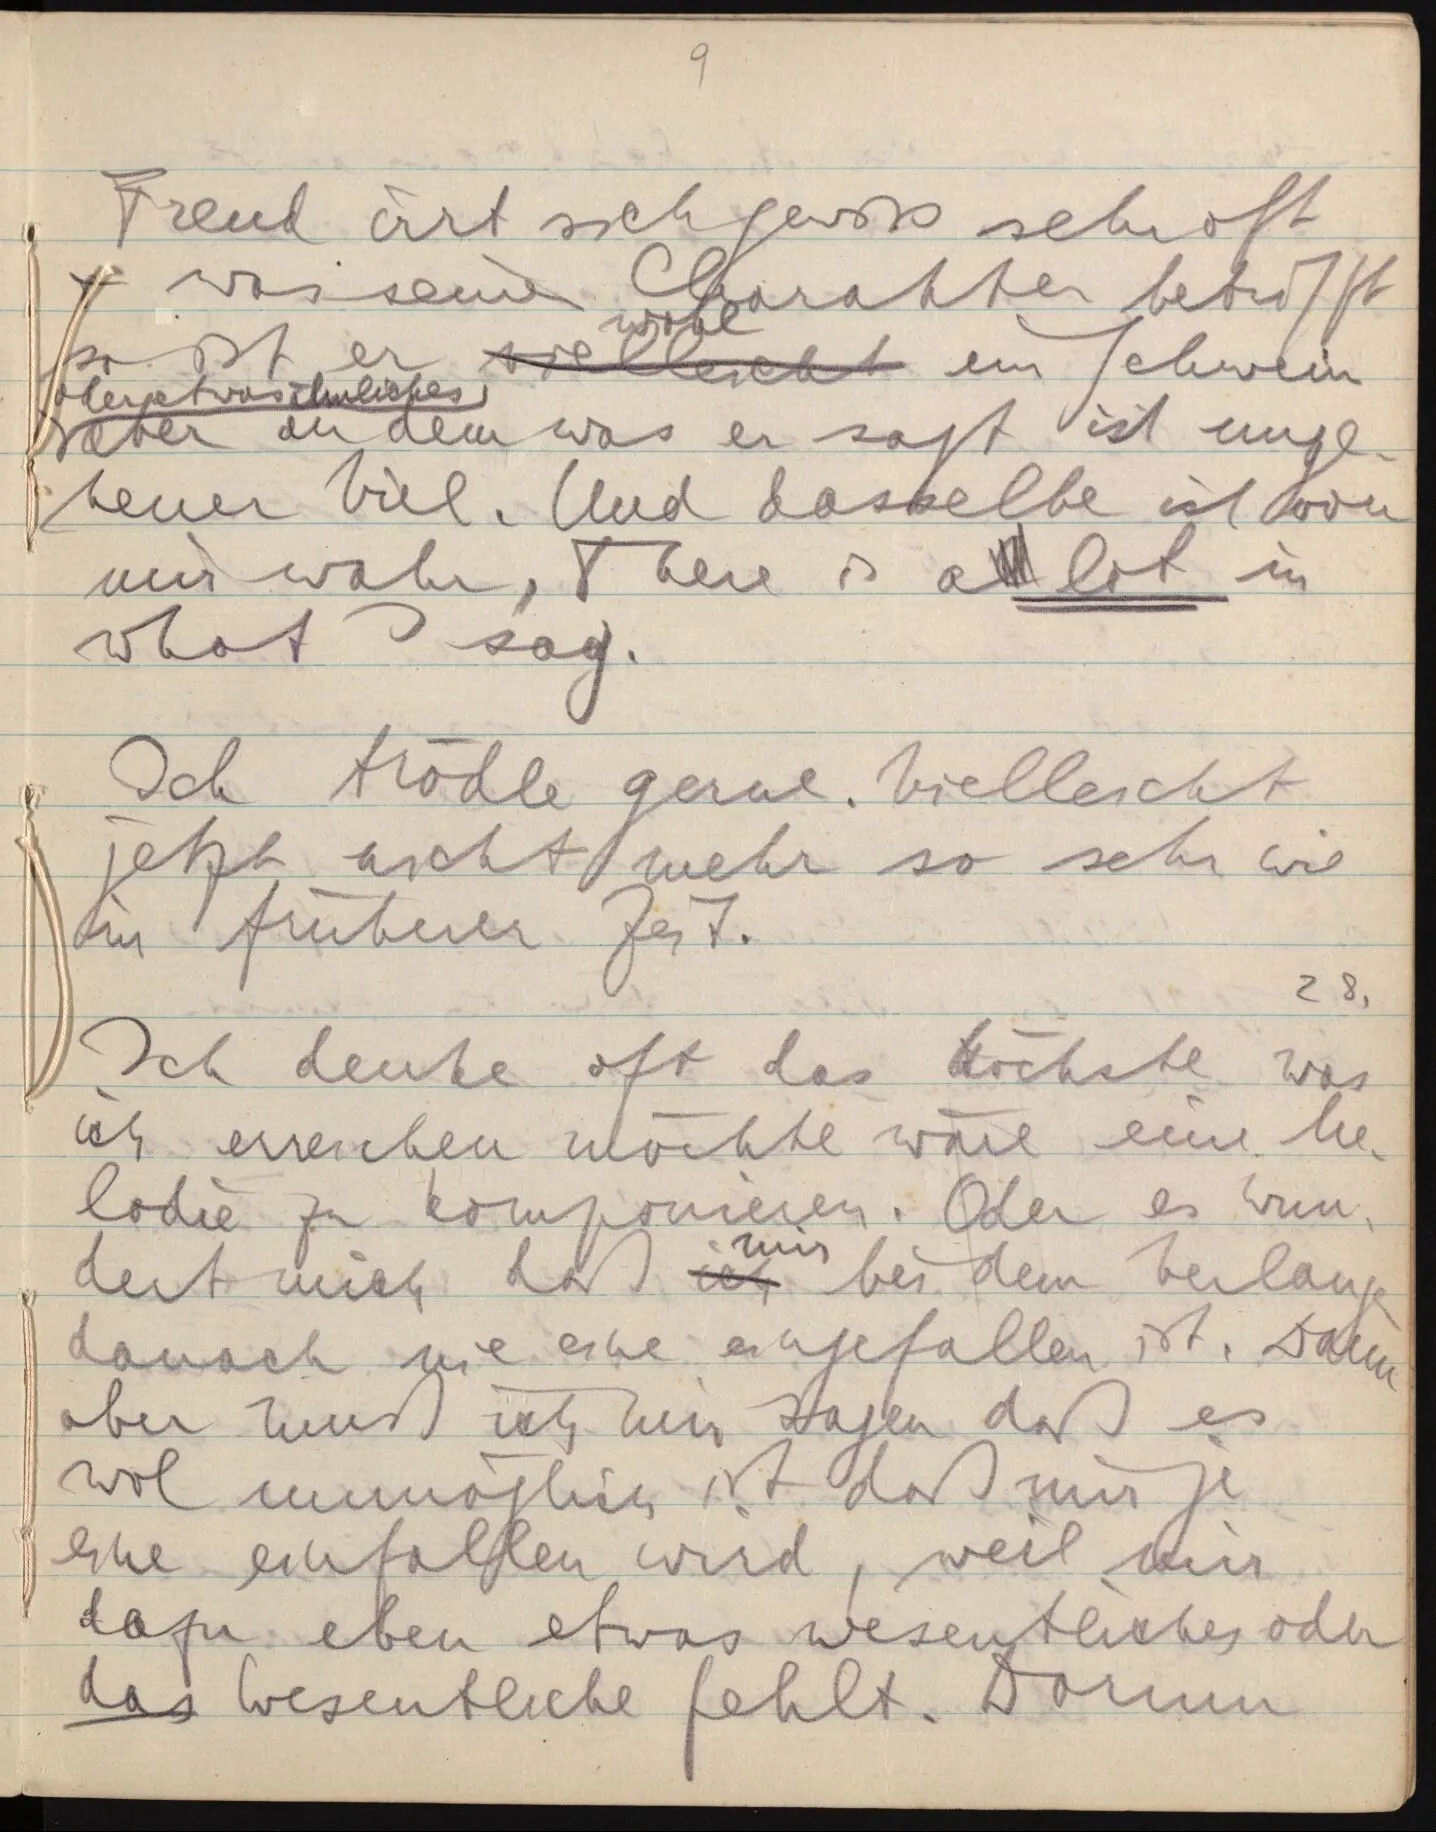 9
Freud irrt sich gewiss sehr oft
& was seinen Charakter betrifft
wohl
so ist er vielleicht ein Schwein
oder etwas ähnliches
aber an dem was er sagt ist unge-
heuer viel. Und dasselbe ist von
mir wahr. There is a lot in
what I say.
Ich trödle gerne. Vielleicht
jetzt nicht mehr so sehr wie
in früherer Zeit.
28.
Ich denke oft das höchste was
ich erreichen möchte wäre eine Me-
lodie zu komponieren. Oder es wun-
mir
dert mich daß ich bei dem Verlangen
danach nie eine eingefallen ist. Dann
aber muß ich mir sagen daß es
wol unmöglich ist daß mir je
eine einfallen wird, weil mir
dazu eben etwas wesentliches oder
das Wesentliche fehlt. Darum